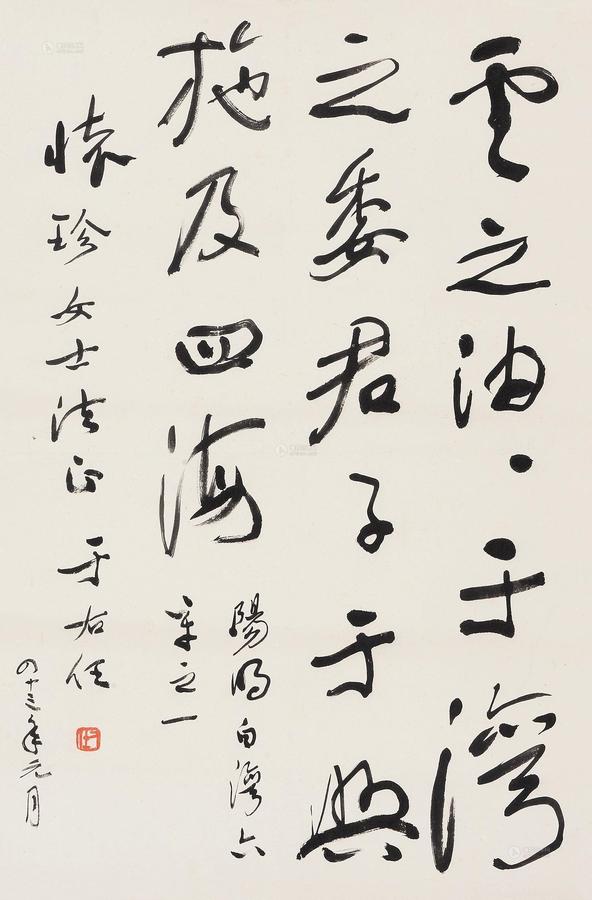 雲之油々于灣
之委君子于興
施及四海
陽明白灣六
章之一
懷珍女士法正 于右任
四十三年元月